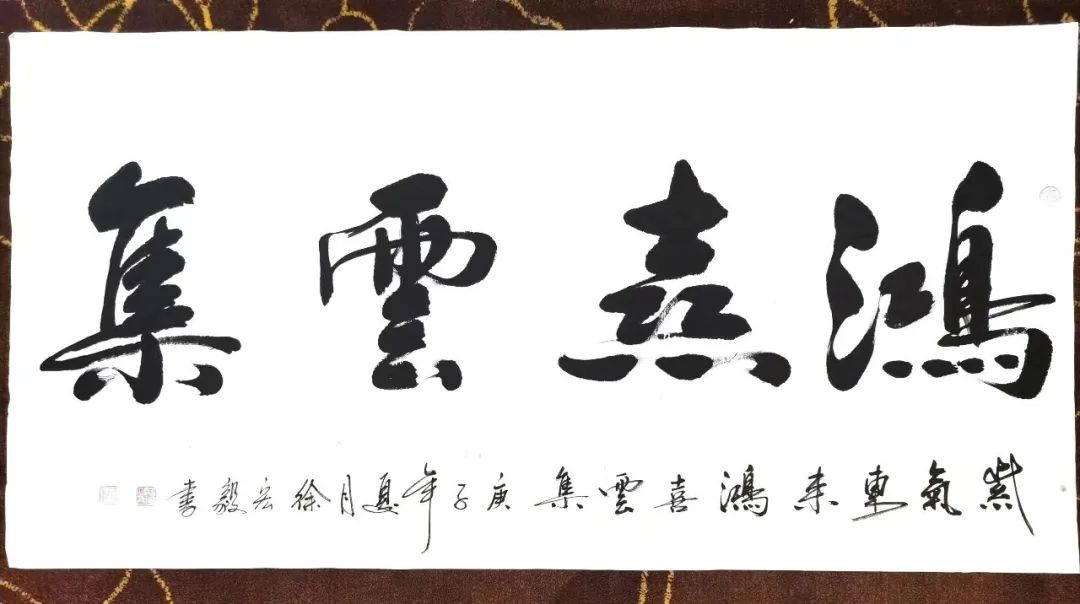 鴻喜雲集
紫氣東来鴻喜雲集庚子年夏月徐宏毅書